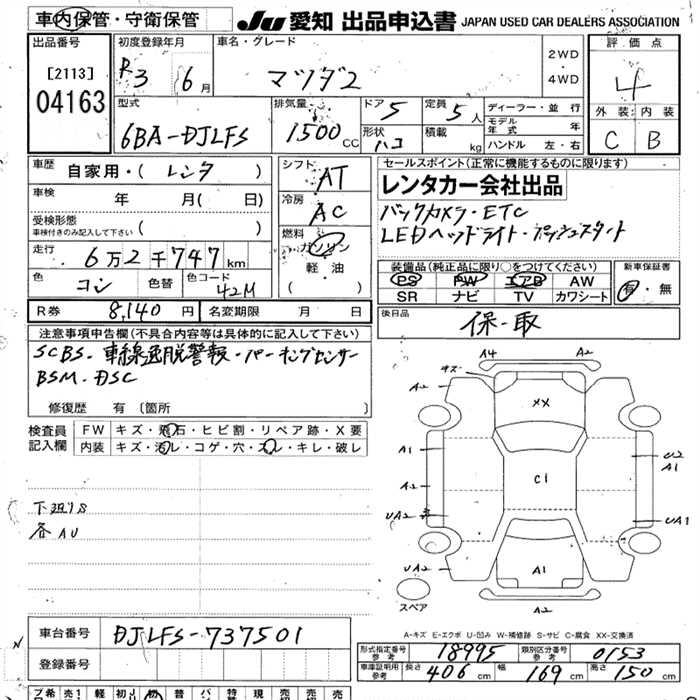 車内保管・守衛保管
JU 愛知 出品申込書 JAPAN USED CAR DEALERS ASSOCIATION
出品番号 [2113] 04163
初度登録年月 R3 6月
車名・グレード マツダ2
2WD
4WD
評価点 4
外装 内装
C B
型式 6BA-DJLFS
排気量 1500 CC
ドア 5
形状 ハコ
定員 5人
積載 kg
ディーラー・並行
モデル年式 年
ハンドル 左・右
車歴 自家用・( レンタ )
車検 年 月( 日)
受検形態 車検付きのみ記入して下さい ( )
走行 6万2千747km
色 コン 色替 色コード 42M
シフト AT
冷房 AC
燃料 ガソリン
軽・油
( )
セールスポイント(正常に機能するものに限ります)
レンタカー会社出品
バックカメラ・ETC
LEDヘッドライト・プッシュスタート
装備品(純正品に限り○をつけてください)
PS PW エアB AW
SR ナビ TV カワシート
新車保証書
有・無
R券 8,140円 名変期限 月 日
後日品 保・取
注意事項申告欄(不具合内容等は具体的に記入して下さい)
SCBS・車線逸脱警報・パーキングセンサー
BSM・DSC
修復歴 有〔箇所 〕
検査員記入欄
FW キズ・飛石・ヒビ割・リペア跡・X要
内装 キズ・汚レ・コゲ・穴・スレ・キレ・破レ
下廻りS
各AU
A4 A2
キズ
A2 XX
A1 U2
A1
A2 C1
UA2 UA1
UA2 A1
A2
スペア
A-キズ E-エクボ U-凹み W-補修跡 S-サビ C-腐食 XX-交換済
車台番号 DJLFS-737501
登録番号
形式指定番号参考 18995 類別区分番号参考 0153
車庫証明用参考 長さ 406cm 幅 169cm 高さ 150cm